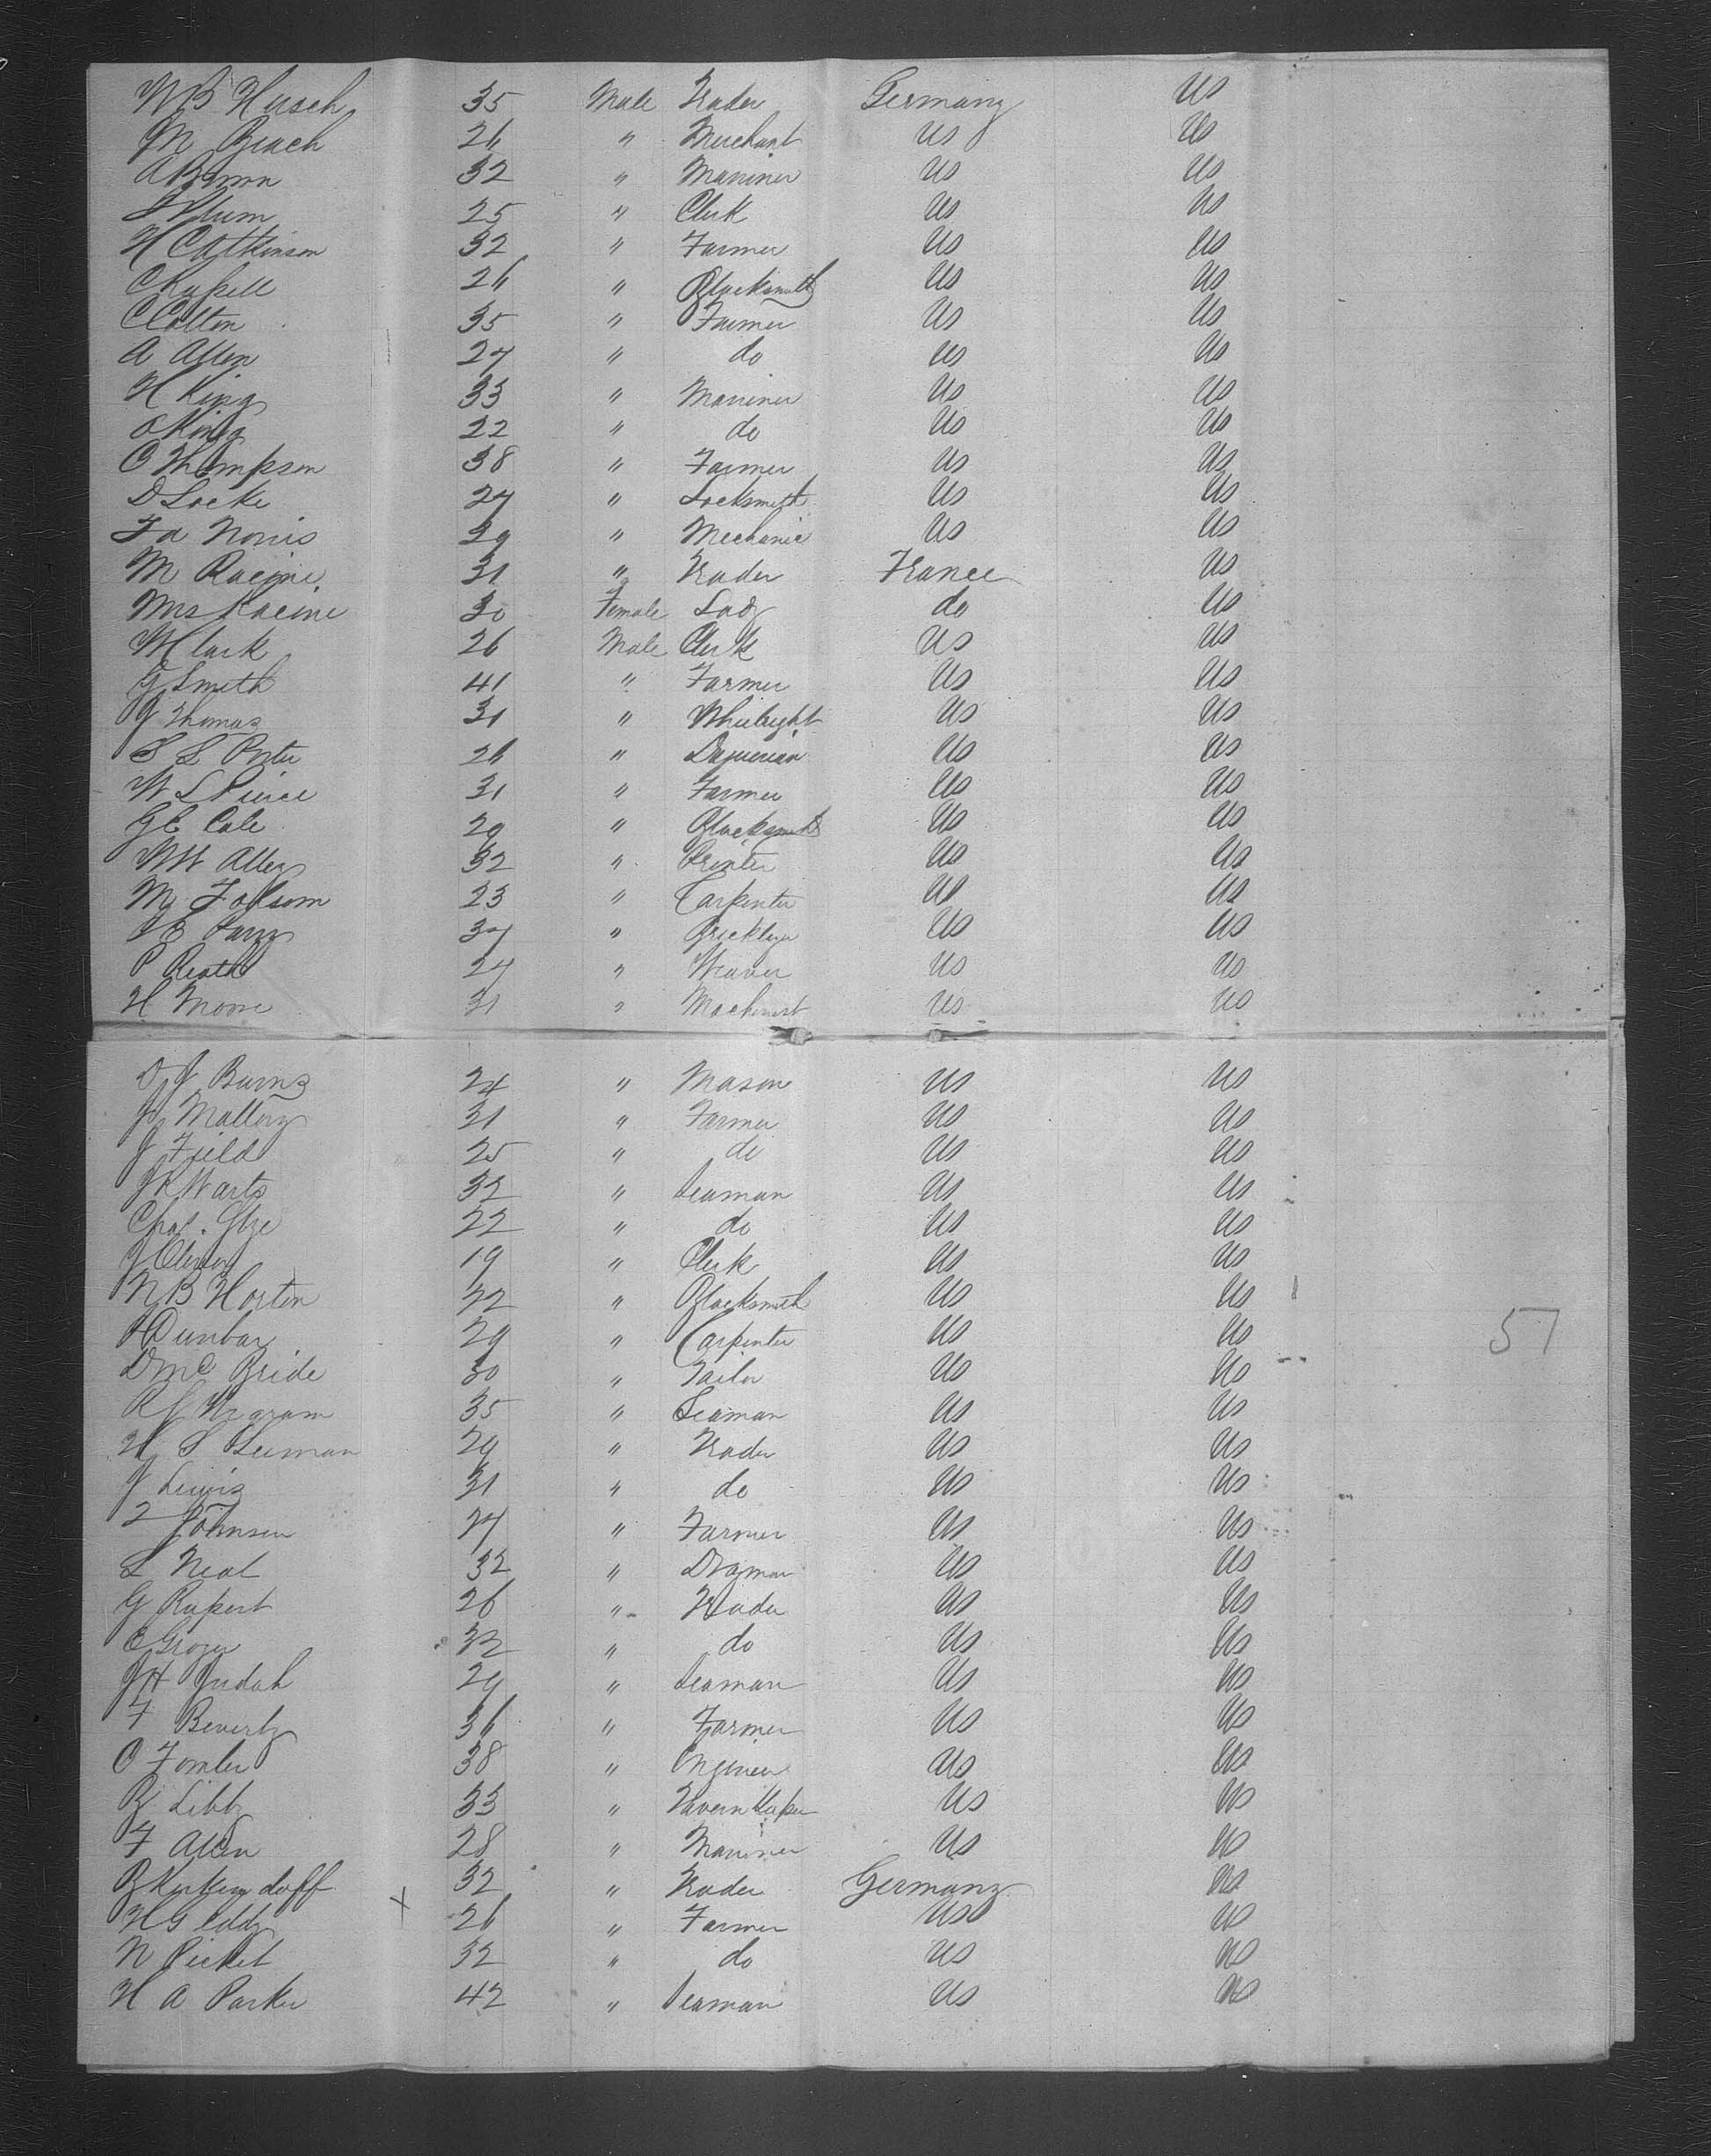 W B Husch 35 Male Trader Germany US
M Beach 26 " Merchant US US
A Brown 32 " Mariner US US
S Plum 25 " Clerk US US
H C Atkinson 32 " Farmer US US
C Russell 26 " Blacksmith US US
C Colton 35 " Farmer US US
A Allen 24 " do US US
H King 33 " Mariner US US
O King 22 " do US US
O Thompson 38 " Farmer US US
D Locke 24 " Locksmith US US
F A Norris 29 " Mechanic US US
M Racine 31 " Trader France US
Mrs Racine 30 Female Lady do US
W Clark 26 Male Clerk US US
G Smith 41 " Farmer US US
J Thomas 31 " Whelright US US
S L Porter 26 " Daguerean US US
W L Pierce 31 " Farmer US US
G C Cole 29 " Blacksmith US US
W W Allen 32 " Printer US US
M Folsom 23 " Carpenter US US
34 " Bricklayer US US
P Heath 24 " Weaver US US
H Moore 31 " Machinist US US
D J Burns 24 " Mason US US
J Mallory 31 " Farmer US US
J Field 25 " do US US
J R Warts 32 " Seaman US US
Chas. 22 " do US US
J 19 " Clerk US US
N B Horton 32 " Blacksmith US US
H Dunbar 29 " Carpenter US US
57
D Mc Bride 30 " Tailor US US
35 " Seaman US US
H S 29 " Trader US US
J Lewis 31 " do US US
Johnson 24 " Farmer US US
L Neal 32 " Drayman US US
G Rupert 26 " Trader US US
E Grozer 32 " do US US
J H Judah 29 " Seaman US US
F Beverly 36 " Farmer US US
O Fowler 38 " Engineer US US
B Libby 33 " Tavern Keeper US US
F Allen 28 " Mariner US US
B 32 " Trader Germany US
H G Eddy x 26 " Farmer US US
N Picket 32 " do US US
H A Parker 42 " Seaman US US